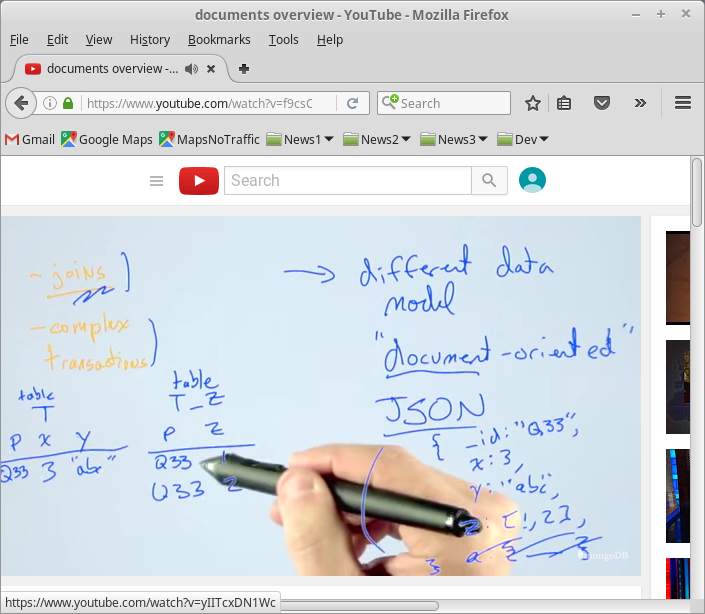 documents overview - YouTube - Mozilla Firefox
File Edit View History Bookmarks Tools Help
documents overview -...
https://www.youtube.com/watch?v=f9csC
Search
Gmail Google Maps MapsNoTraffic News1 News2 News3 Dev
Search
- joins
- complex
transactions
different data
model
"document-oriented"
table
T
p x y
Q33 3 "abc"
table
T_Z
p z
Q33 1
Q33 2
JSON
{ _id: "Q33",
x: 3,
y: "abc",
z: [1, 2],
mongoDB
https://www.youtube.com/watch?v=yIITcxDN1Wc